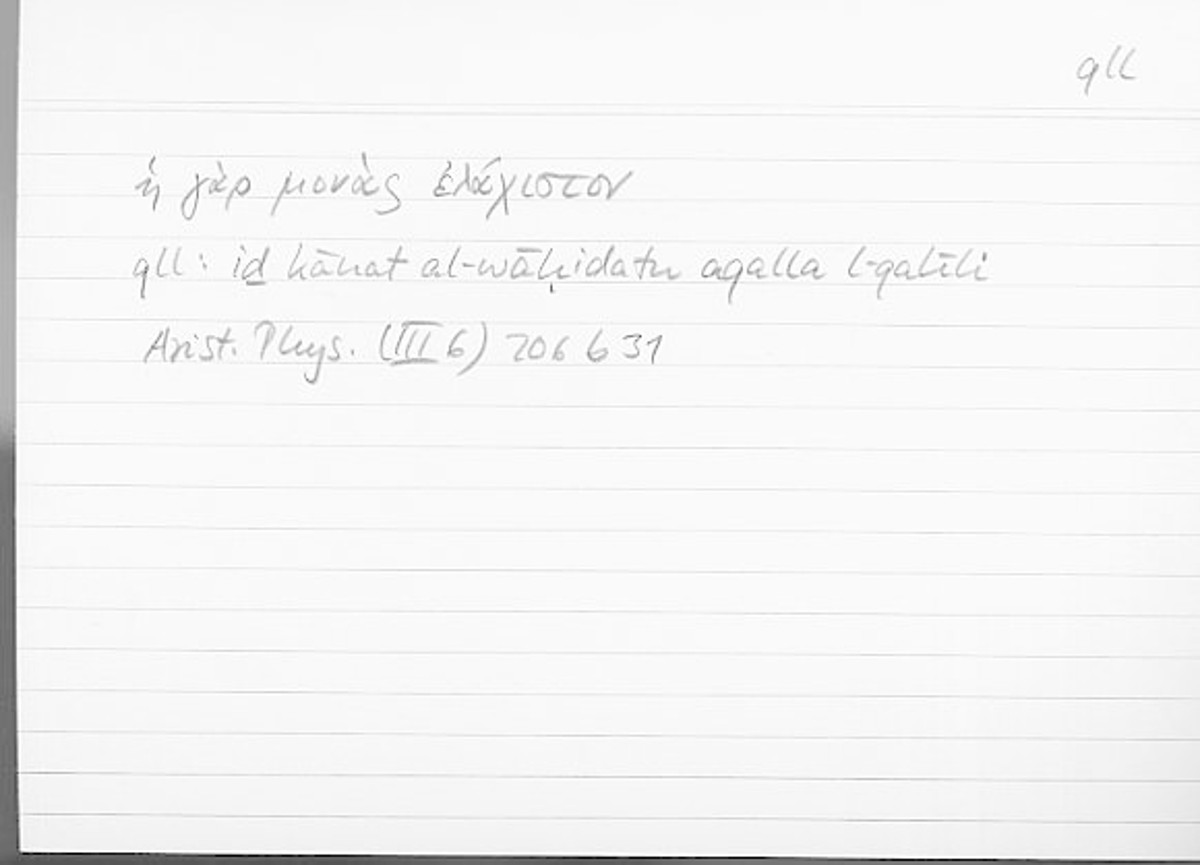 qll
ἡ γὰρ μονὰς ἐλάχιστον
qll: iḏ kānat al-wāḥidatu aqalla l-qalīli
Arist. Phys. (III 6) 206 b 31